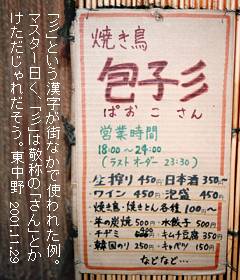 「彡」という漢字が街なかで使われた例。
マスター曰く、「彡」は敬称の「さん」とか
けただじゃれだそう。東中野 2001.11.29
焼き鳥
包子彡
ぱおこさん
営業時間
18:00~24:00
(ラストオーダー 23:30)
生搾り 450円 日本酒 350~
ワイン 450円 泡盛 450円
焼き鳥・焼きとん 各種 100~
牛の炭焼 500円 水餃子 500円
チヂミ キムチ各種 350~
韓国のり 250円 キャベツ 150円
などなど…